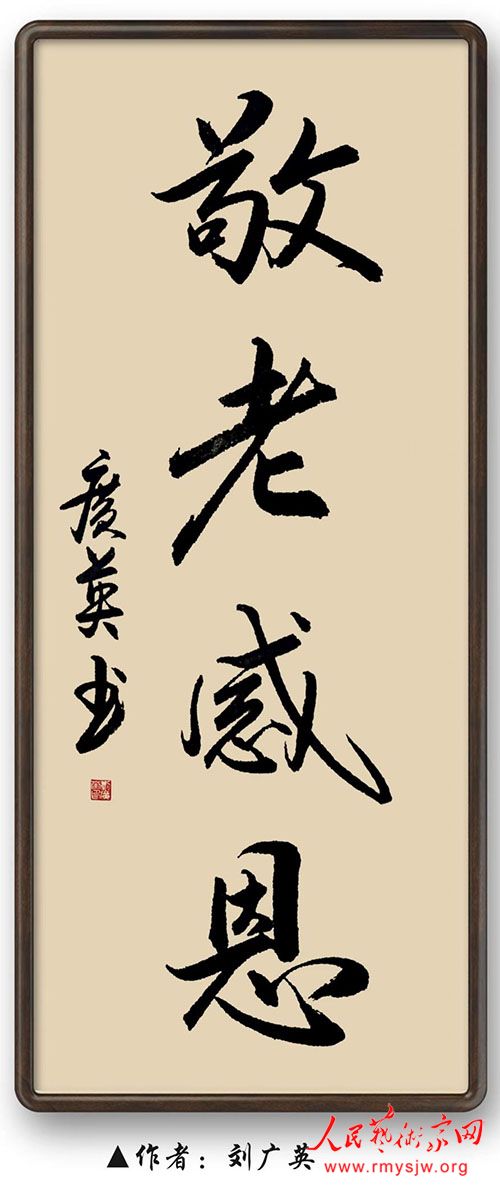 敬老感恩
廣英书
▲作者：刘广英
人民藝術家网
www.rmysjw.org